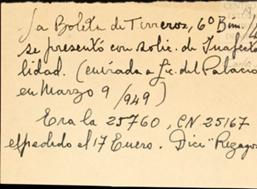 La Boleta de Terreros, 6º Bim/
se presentó con solic. de Inafecta
lidad. (enviada a Lic. del Palacio
en Marzo 9/949)
Era la 25760, CN 25167
expedido el 17 Enero. Dice "Rezago